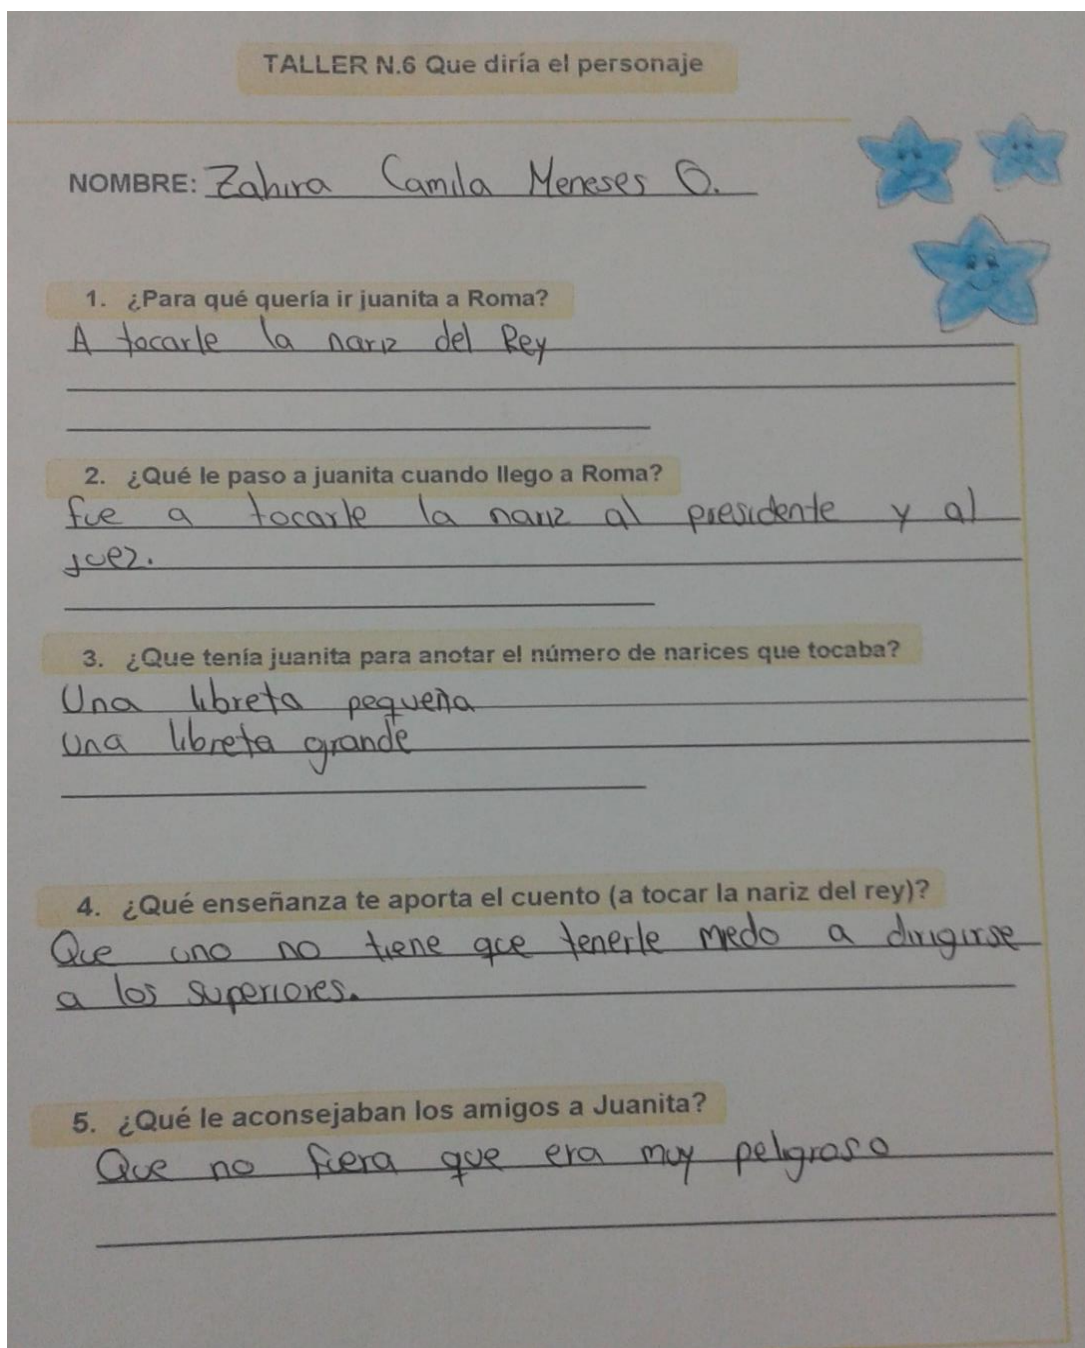 TALLER N.6 Que diría el personaje
NOMBRE: Zahira Camila Meneses O.
1. ¿Para qué quería ir juanita a Roma?
A tocarle la nariz del Rey
2. ¿Qué le paso a juanita cuando llego a Roma?
fue a tocarle la nariz al presidente y al
juez.
3. ¿Que tenía juanita para anotar el número de narices que tocaba?
Una libreta pequeña
una libreta grande
4. ¿Qué enseñanza te aporta el cuento (a tocar la nariz del rey)?
Que uno no tiene que tenerle miedo a dirigirse
a los superiores.
5. ¿Qué le aconsejaban los amigos a Juanita?
Que no fuera que era muy peligroso